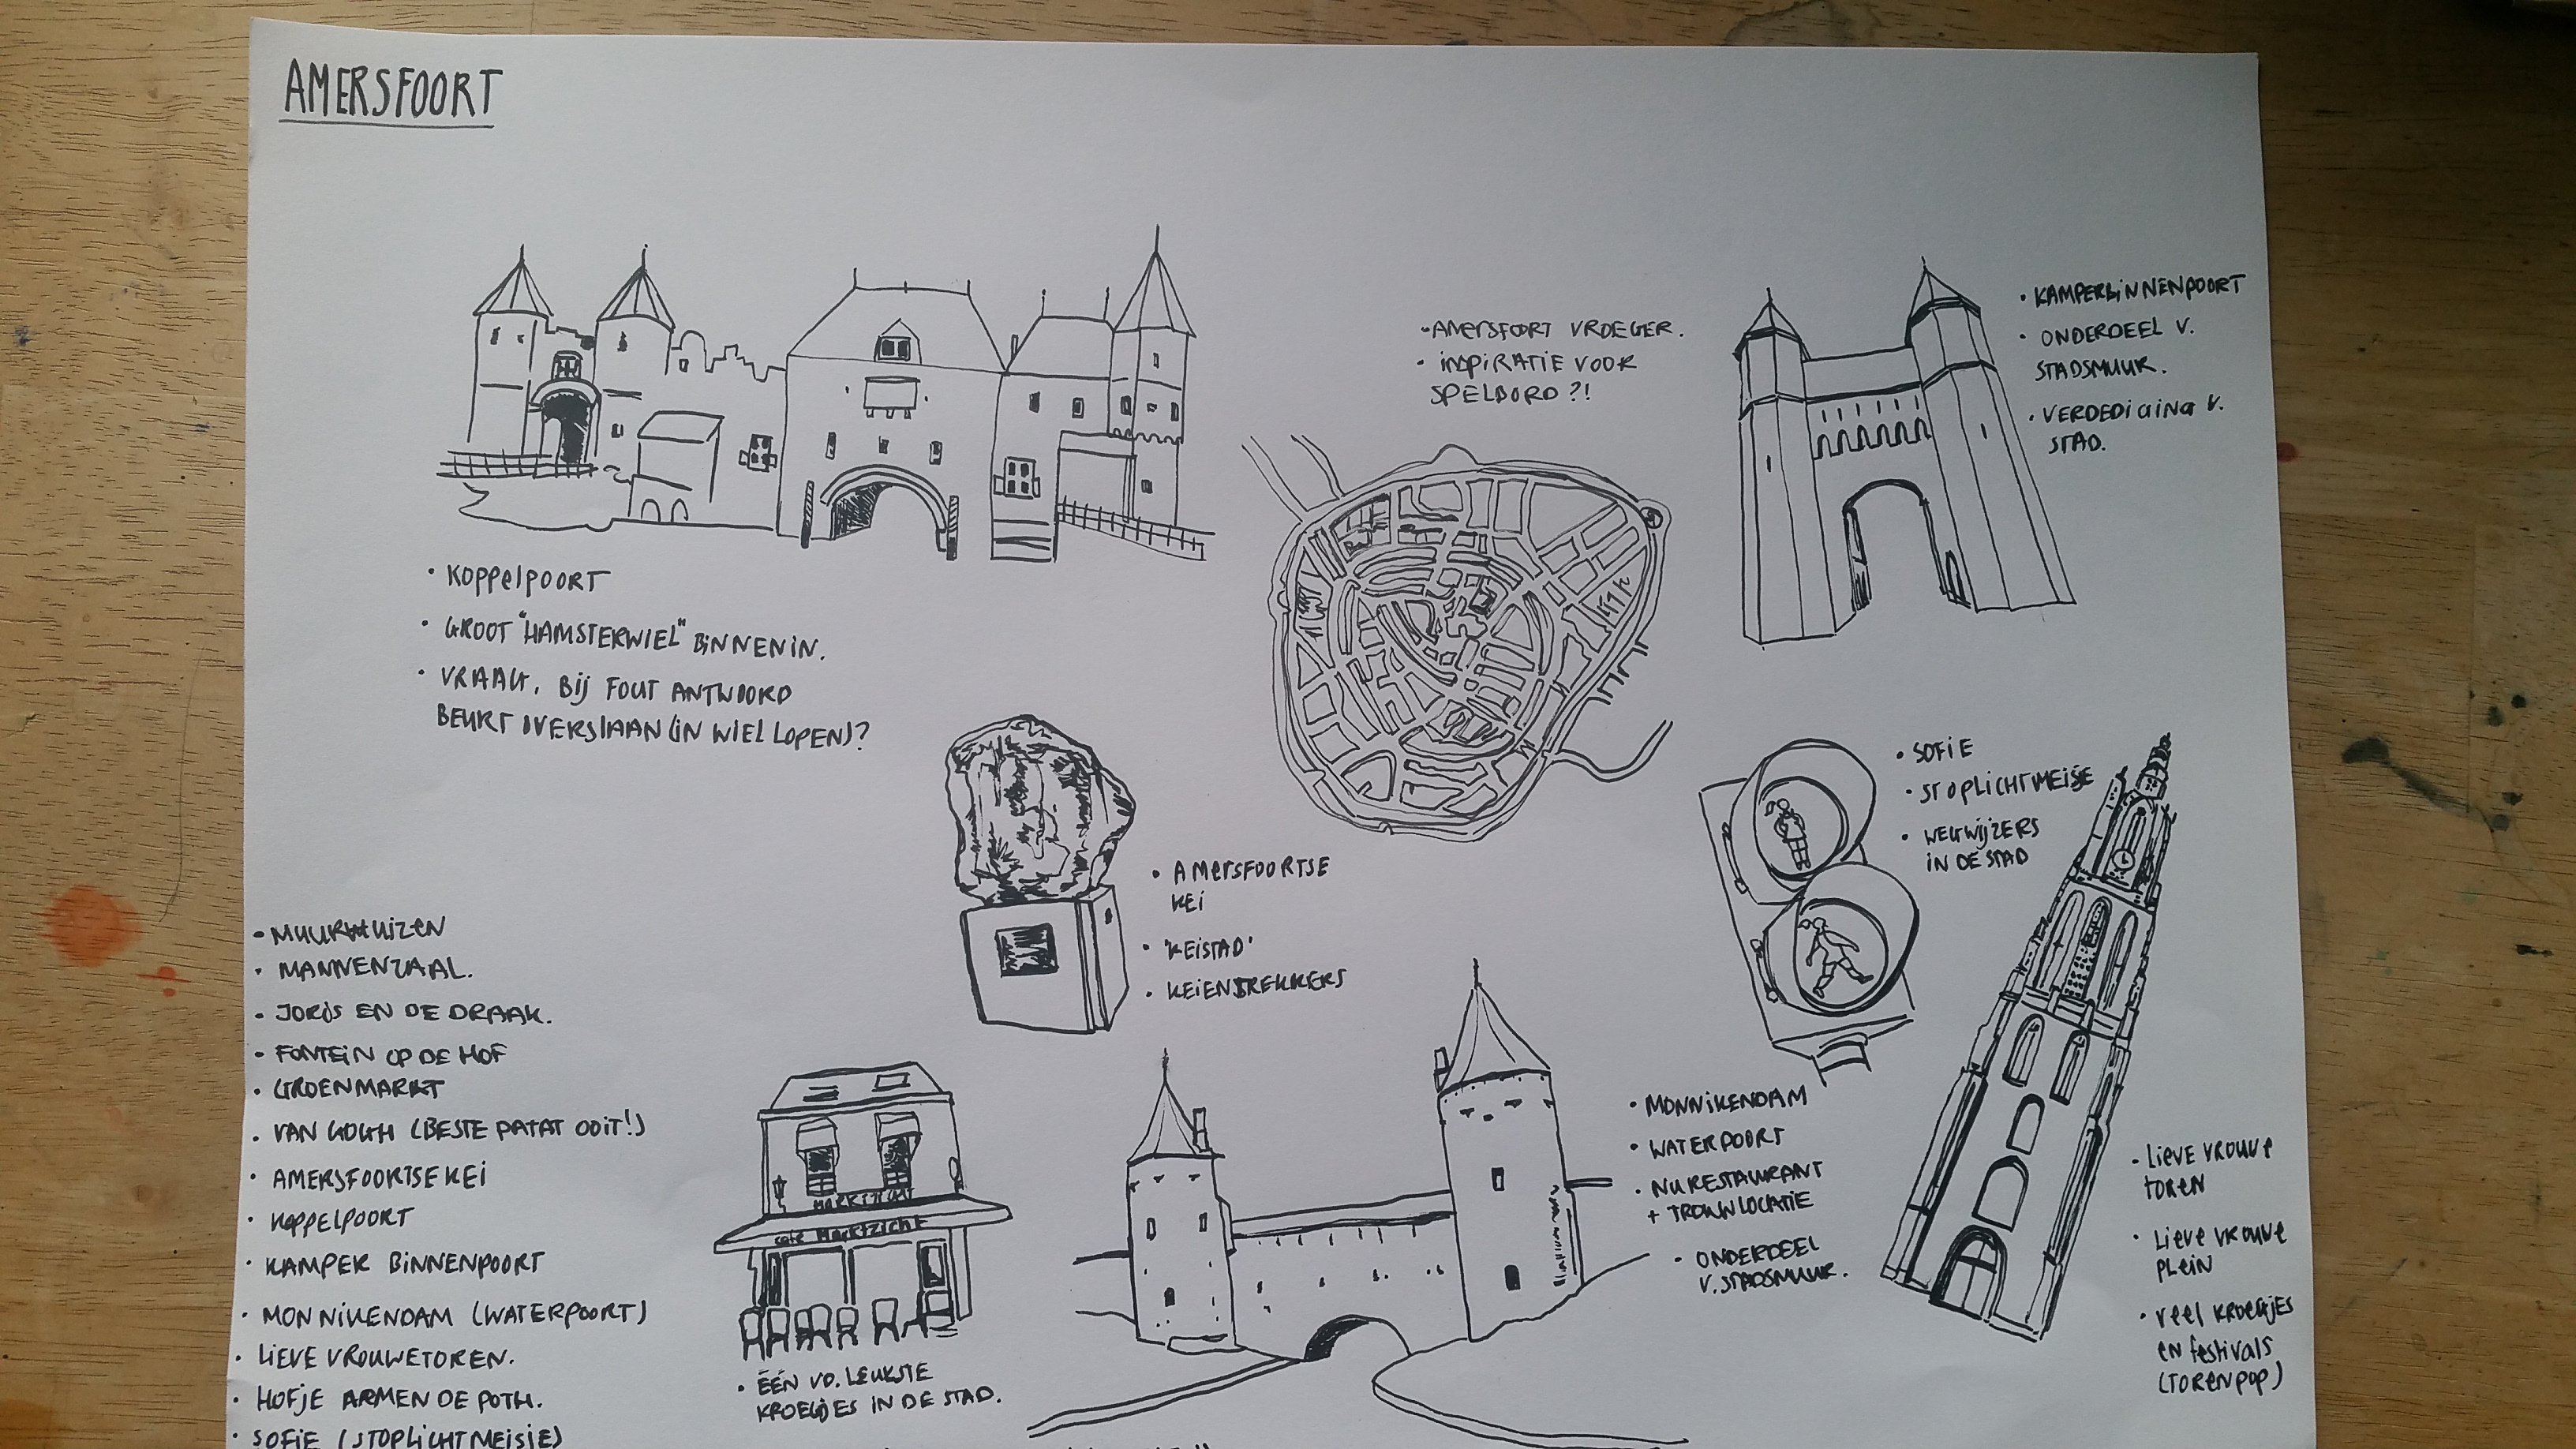 AMERSFOORT
• KOPPELPOORT
• GROOT "HAMSTERWIEL" BINNENIN.
• VRAAG, BIJ FOUT ANTWOORD
BEURT OVERSLAAN (IN WIEL LOPEN)?
• AMERSFOORT VROEGER.
• INSPIRATIE VOOR
SPELBORD ?!
• KAMPERBINNENPOORT
• ONDERDEEL V.
STADSMUUR.
• VERDEDIGING V.
STAD.
• AMERSFOORTSE
KEI
• 'KEISTAD'
• KEIENTREKKERS
• SOFIE
• STOPLICHTMEISJE
• WEGWIJZERS
IN DE STAD
• MUURHUIZEN
• MANNENZAAL.
• JORIS EN DE DRAAK.
• FONTEIN OP DE HOF
• GROENMARKT
• VAN GOGH (BESTE PATAT OOIT!)
• AMERSFOORTSE KEI
• KOPPELPOORT
• KAMPER BINNENPOORT
• MONNIKENDAM (WATERPOORT)
• LIEVE VROUWETOREN.
• HOFJE ARMEN DE POTH.
• SOFIE (STOPLICHTMEISJE)
MARKTZICHT
café MARKTZICHT
• ÉÉN VD. LEUKSTE
KROEGJES IN DE STAD.
• MONNIKENDAM
• WATERPOORT
• NU RESTAURANT
+ TROUWLOCATIE
• ONDERDEEL
V. STADSMUUR.
• LIEVE VROUWE
TOREN
• LIEVE VROUWE
PLEIN
• VEEL KROEGJES
EN festivals
(TORENPOP)